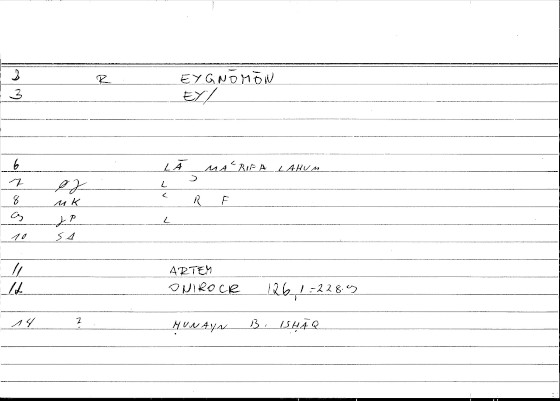 2 R EYGNŌMŌN
3 EY/
6 LĀ MAʿRIFA LAHUM
7 ØJ L ʾ
8 MK ʿ R F
9 JP L
10 SA
11 ARTEM
12 ONIROCR 126,1=228.9
14 ? ḤUNAYN B. ISḤĀQ